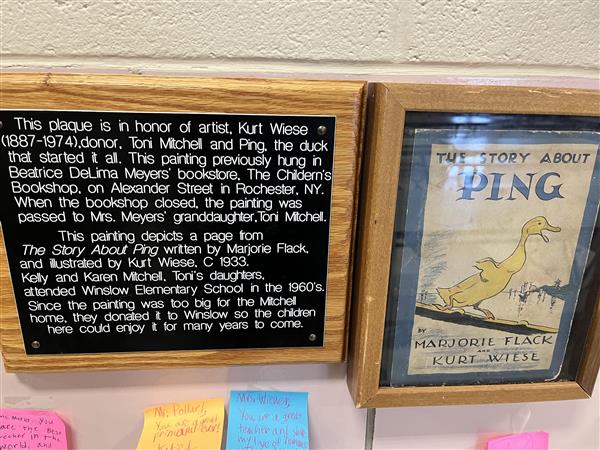 This plaque is in honor of artist, Kurt Wiese
(1887-1974),donor, Toni Mitchell and Ping, the duck
that started it all. This painting previously hung in
Beatrice DeLima Meyers' bookstore, The Childern's
Bookshop, on Alexander Street in Rochester, NY.
When the bookshop closed, the painting was
passed to Mrs. Meyers' granddaughter,Toni Mitchell.
This painting depicts a page from
The Story About Ping written by Marjorie Flack,
and illustrated by Kurt Wiese, C 1933.
Kelly and Karen Mitchell, Toni's daughters,
attended Winslow Elementary School in the 1960's.
Since the painting was too big for the Mitchell
home, they donated it to Winslow so the children
here could enjoy it for many years to come.
THE STORY ABOUT
PING
BY
MARJORIE FLACK
AND
KURT WIESE
You
are the Best
in this
world, and
Mr. Pollard,
You are a great
Mrs.
You are a great
teacher and
my love of